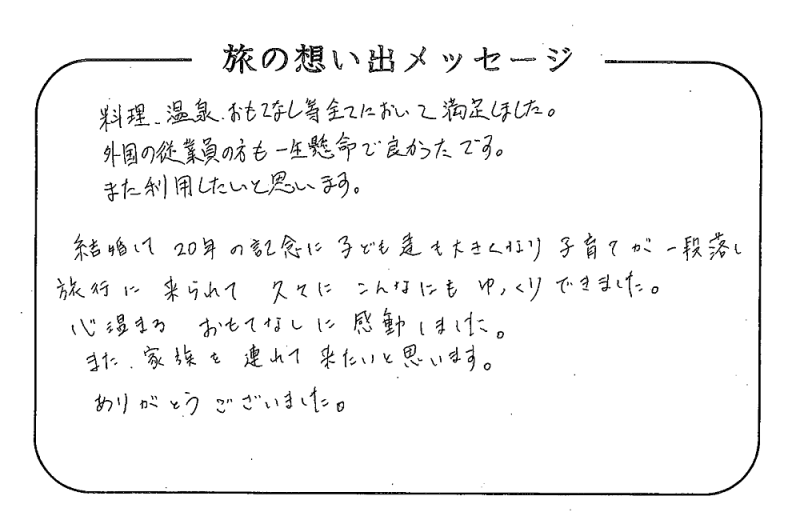 旅の想い出メッセージ
料理、温泉、おもてなし等全てにおいて満足しました。
外国の従業員の方も一生懸命で良かったです。
また利用したいと思います。
結婚して 20年の記念に 子ども達も大きくなり 子育てが 一段落し
旅行に 来られて 久々に こんなにも ゆっくりできました。
心温まる おもてなしに 感動しました。
また、家族を 連れて 来たいと思います。
ありがとうございました。